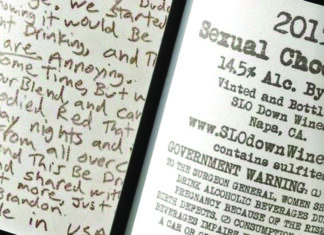 ge, we started
nowing it would Be
ht Drinking, and Th
are Annoying.
some Time, But w
our Blend and can
odied Red That
ay nights and i
from all over C
nd This Be Dr
nd shared with
more, Just
Brandon
de in USA
201
Sexual Choc
14.5% Alc. By
Vinted and Bottl
SLO Down Wines
Napa, CA.
www.SLOdownWine
contains sulfites
GOVERNMENT WARNING: (1)
TO THE SURGEON GENERAL, WOMEN SH
DRINK ALCOHOLIC BEVERAGES DU
PREGNANCY BECAUSE OF THE RISK
BIRTH DEFECTS. (2) CONSUMPTION
BEVERAGES IMPAIRS
A CAR OR